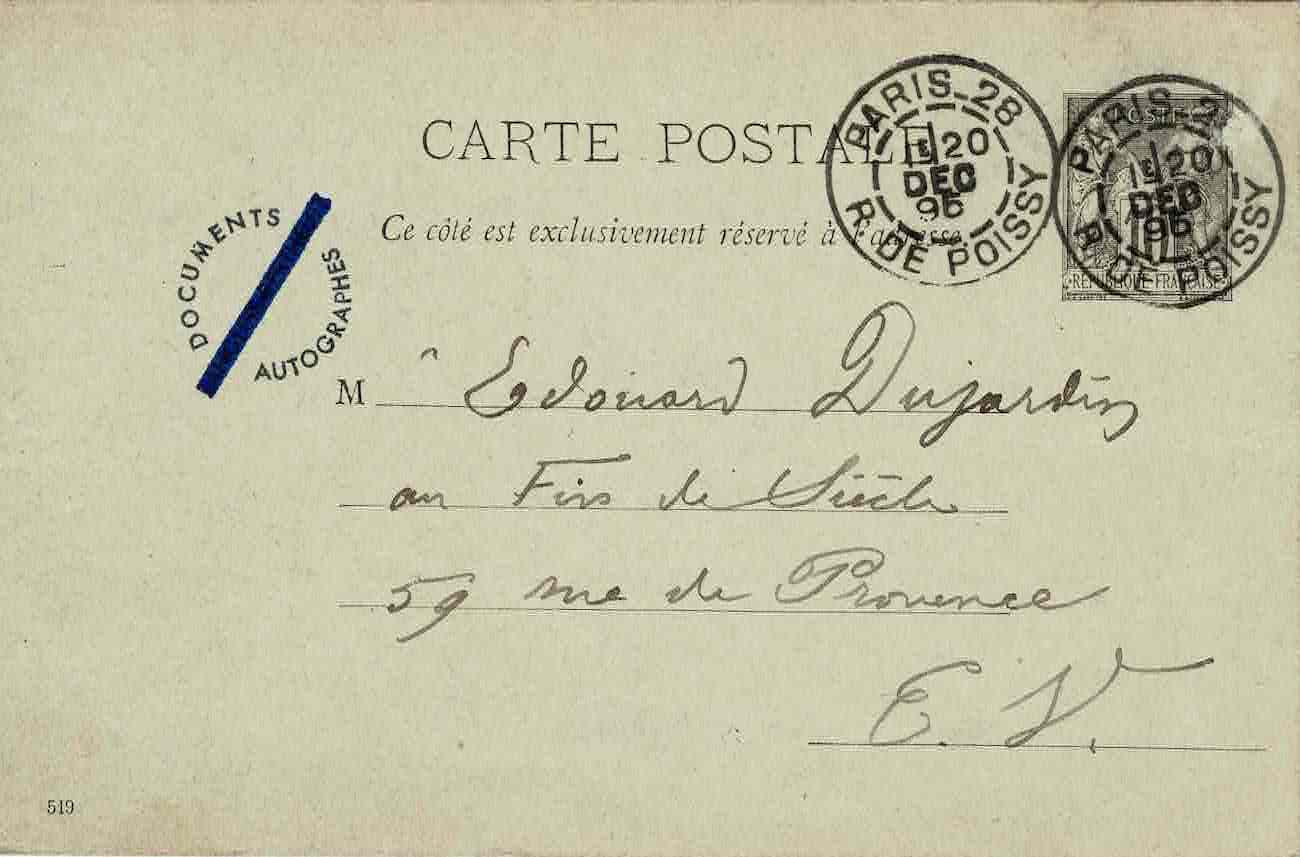 CARTE POSTALE
Ce côté est exclusivement réservé à l'adresse
PARIS_28
20
DEC
95
R. DE POISSY
POSTES
PARIS
20
DEC
95
R. DE POISSY
RÉPUBLIQUE FRANÇAISE
DOCUMENTS
AUTOGRAPHES
M Edouard Dujardin
au Fin de Siècle
59 rue de Provence
E. V.
519